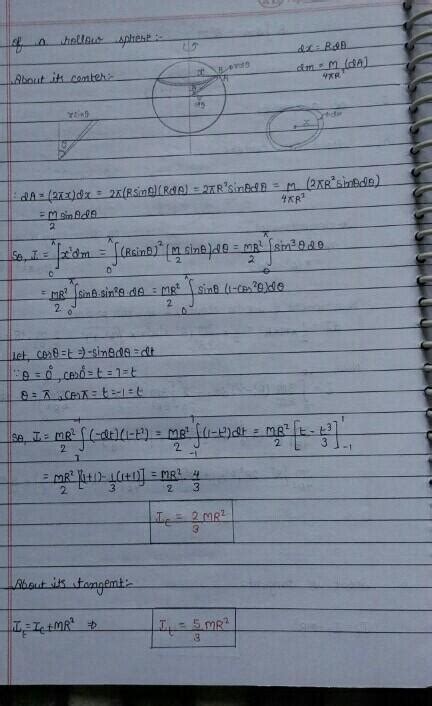 of a hollow sphere:-
dx = Rdθ
About its center:-
dm = M/4πR² (dA)
∵ dA = (2πx)dx = 2π(Rsinθ)(Rdθ) = 2πR²sinθdθ = M/4πR² (2πR²sinθdθ)
= M/2 sinθdθ
So, I = ∫₀^π x²dm = ∫₀^π (Rsinθ)² (M/2 sinθ)dθ = MR²/2 ∫₀^π sin³θdθ
= MR²/2 ∫₀^π sinθ.sin²θ.dθ = MR²/2 ∫₀^π sinθ (1-cos²θ)dθ
Let, cosθ = t ⇒ -sinθdθ = dt
∵ θ = 0°, cos0° = t = 1 = t
θ = π, cosπ = t = -1 = t
So, I = MR²/2 ∫₁^-1 (-dt)(1-t²) = MR²/2 ∫₋₁^1 (1-t²)dt = MR²/2 [t - t³/3]₋₁^1
= MR²/2 [(1+1) - 1/3 (1+1)] = MR²/2 4/3
I_c = 2/3 MR²
About its tangent:-
I_t = I_c + MR² ⇒ I_t = 5/3 MR²